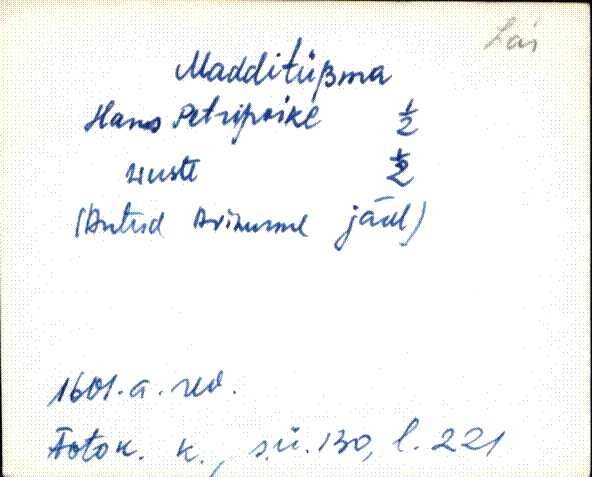 Lais
Madditüßma
Hans Petripoike ½
wüste ½
(Antud Avinurme järel)
1601. a. rev.
Fotok. k., s.ü. 130, l. 221